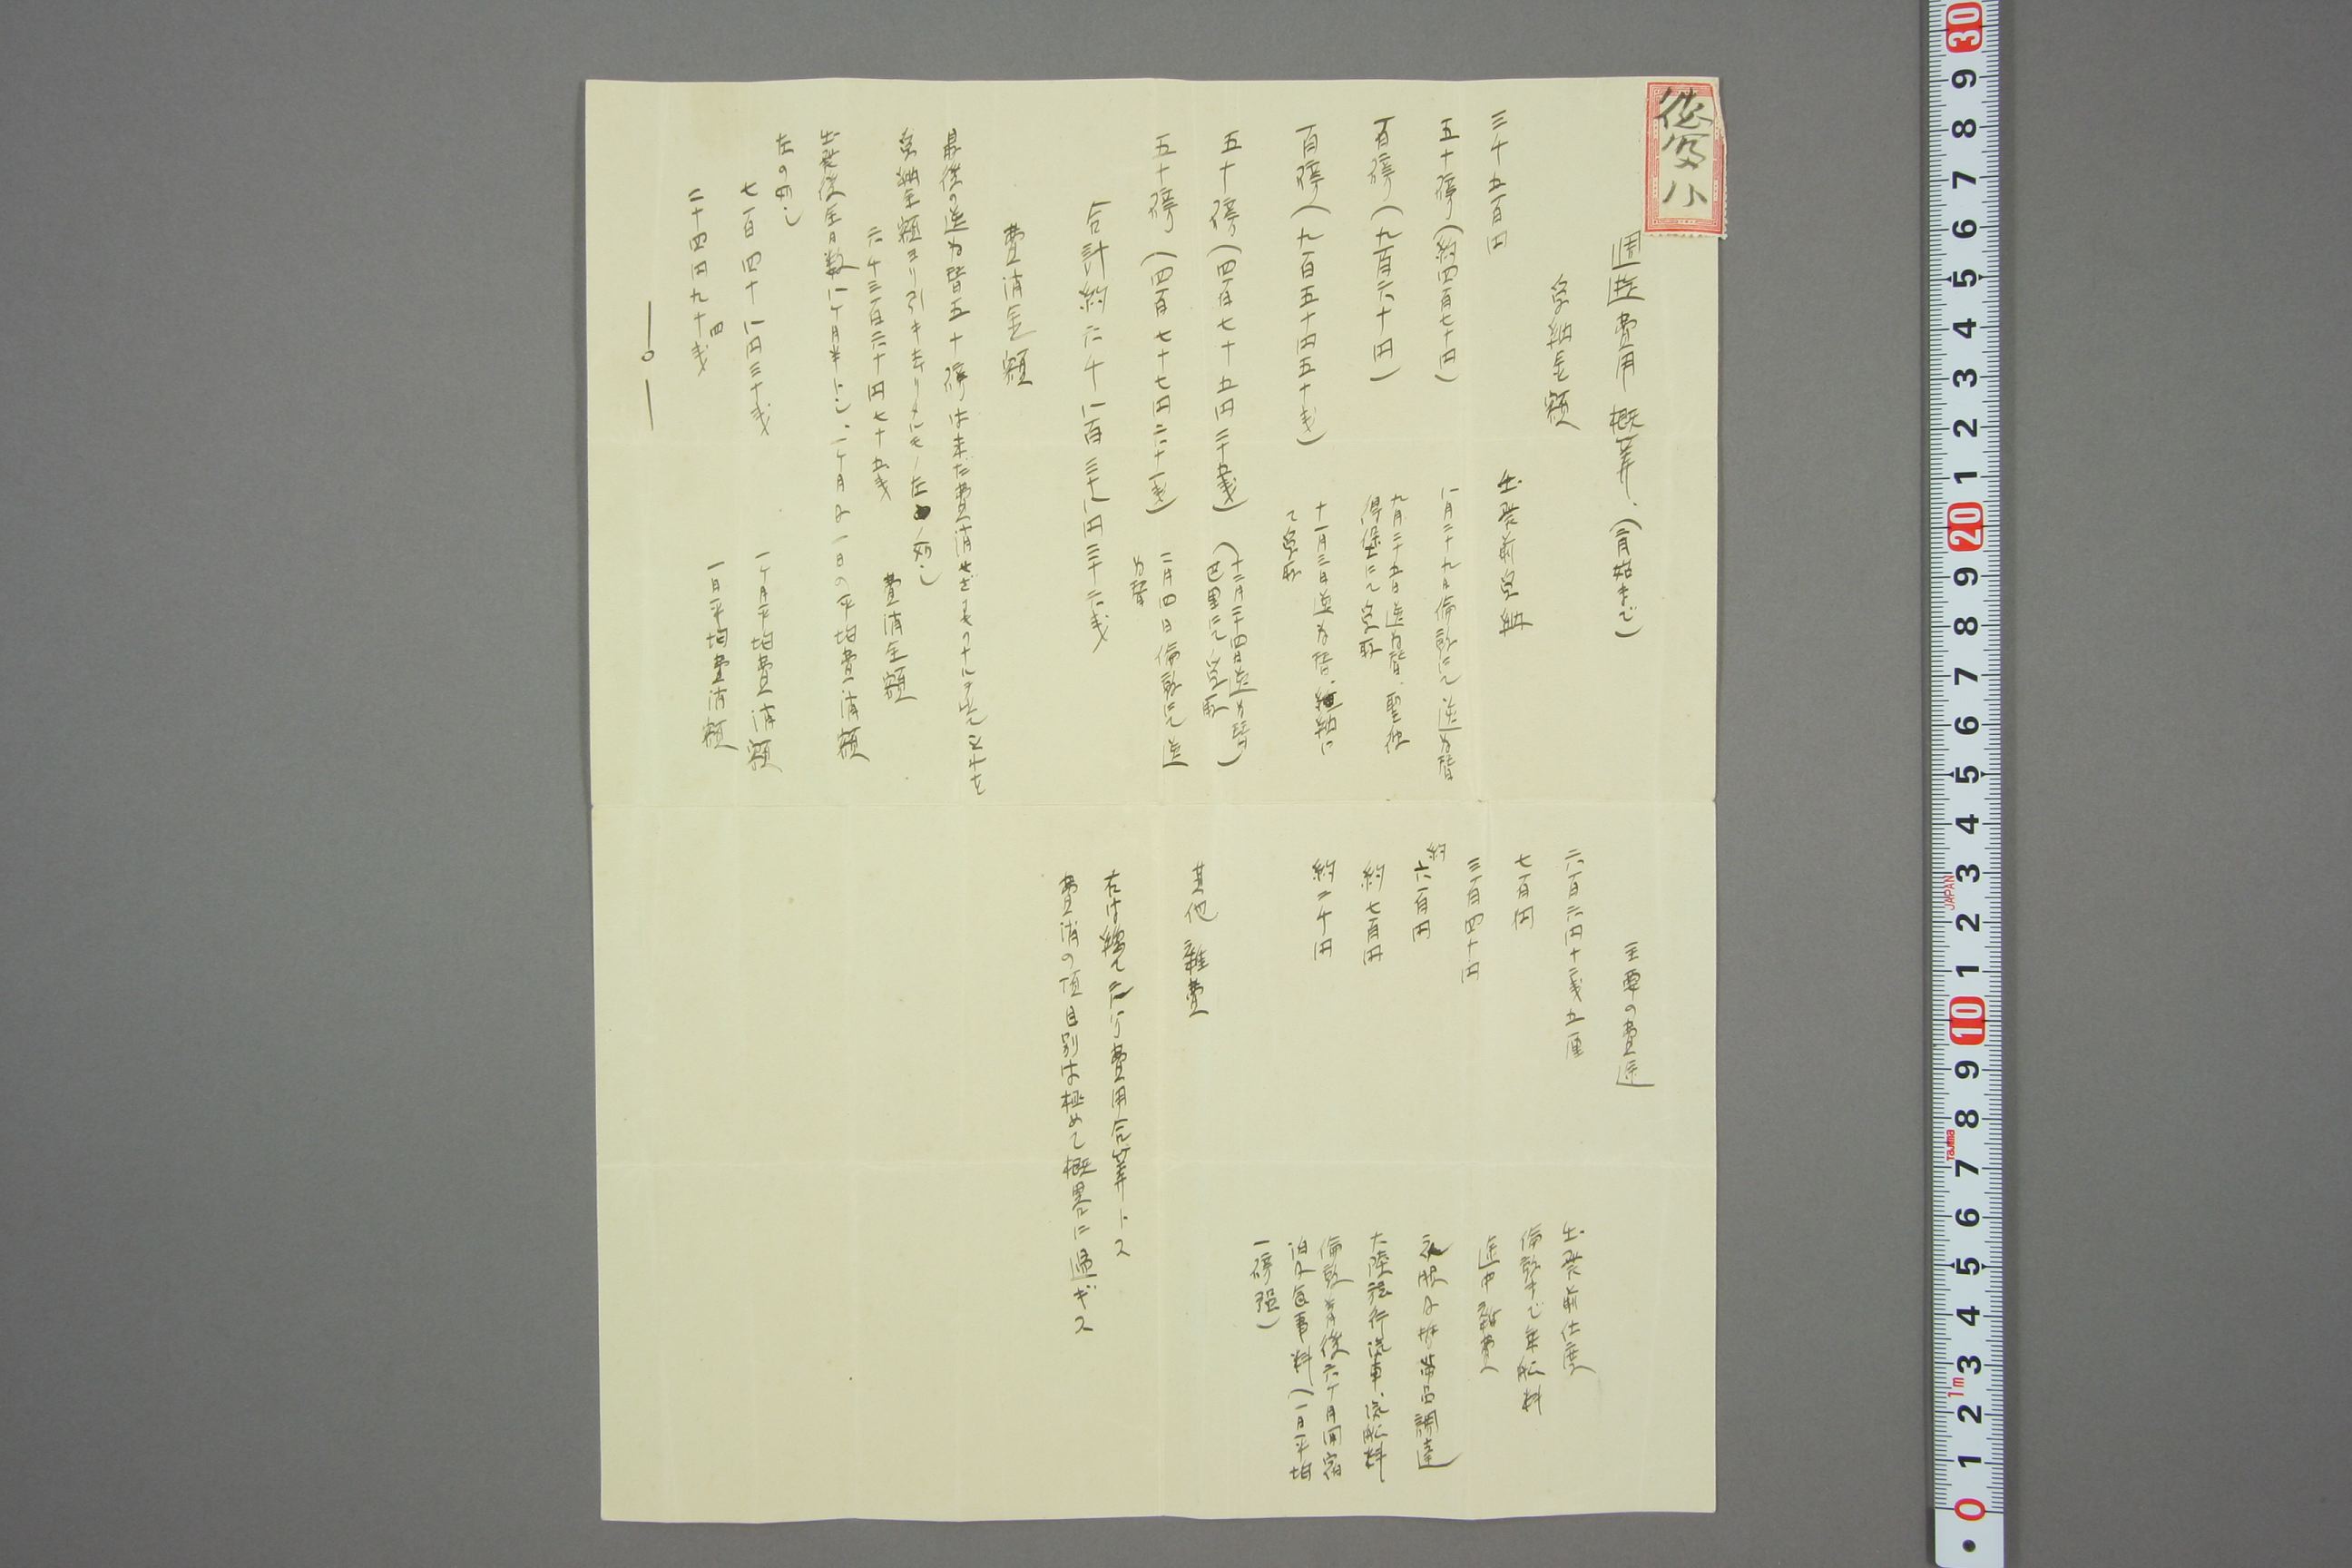 週遊費用概算、(二月始まで)
受納金額
三千五百円 出発前受納
五十磅(約四百七十円) 八月二十九日倫敦にて送為替
百磅(九百六十円) 九月二十五日送為替、聖彼
得堡にて受取
百磅(九百五十円五十銭) 十一月三日送為替、維納に
て受取
五十磅(四百七十五円二十五銭) (十二月二十四日送為替)
巴里にて受取
五十磅(四百七十七円二十一銭) 二月四日倫敦にて送
為替
合計約六千八百三十八円三十六銭
費消金額
最後の送為替五十磅は未だ費消せざるものナルヲ以て之ヲ
受納金額ヨリ引キ去リタルモノ左ノ如し
六千三百六十円七十五銭 費消全額
出発後全日数八ヶ月半トシ、一ヶ月及一日の平均費消額
左の如し
七百四十八円三十銭 一ヶ月平均費消額
二十四円九十四銭 一日平均費消額
主要の費途
六百六円十二銭五厘 出発前仕度
七百円 倫敦まで乗船料
三百四十円 途中雑費
約六百円 衣服及携帯品調達
約七百円 大陸旅行汽車、汽船料
約二千円 倫敦着後六ヶ月間宿
泊及食事料(一日平均
一磅強)
其他雑費
右は総て 費用合算トス
費消の項目別は極めて概畧に過ギス